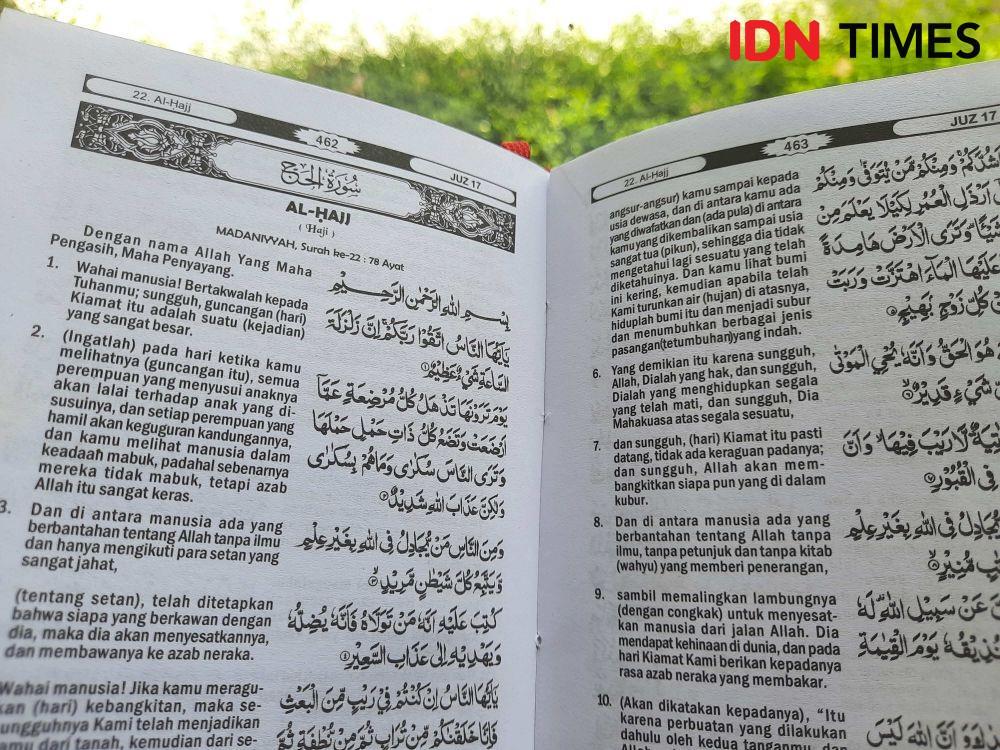 IDN TIMES
22. Al-Ḥajj
462
JUZ 17
سُورَةُ الْحَجِّ
AL-ḤAJJ
( Haji )
MADANIYYAH, Surah ke-22 : 78 Ayat
Dengan nama Allah Yang Maha
Pengasih, Maha Penyayang.
1. Wahai manusia! Bertakwalah kepada
Tuhanmu; sungguh, guncangan (hari)
Kiamat itu adalah suatu (kejadian)
yang sangat besar.
2. (Ingatlah) pada hari ketika kamu
melihatnya (guncangan itu), semua
perempuan yang menyusui anaknya
akan lalai terhadap anak yang di-
susuinya, dan setiap perempuan yang
hamil akan keguguran kandungannya,
dan kamu melihat manusia dalam
keadaan mabuk, padahal sebenarnya
mereka tidak mabuk, tetapi azab
Allah itu sangat keras.
3. Dan di antara manusia ada yang
berbantahan tentang Allah tanpa ilmu
dan hanya mengikuti para setan yang
sangat jahat,
(tentang setan), telah ditetapkan
bahwa siapa yang berkawan dengan
dia, maka dia akan menyesatkannya,
dan membawanya ke azab neraka.
Wahai manusia! Jika kamu meragu-
kan (hari) kebangkitan, maka se-
sungguhnya Kami telah menjadikan
kamu dari tanah, kemudian dari se-
بِسْمِ اللّٰهِ الرَّحْمٰنِ الرَّحِيْمِ
يٰٓاَيُّهَا النَّاسُ اتَّقُوْا رَبَّكُمْۚ اِنَّ زَلْزَلَةَ
السَّاعَةِ شَيْءٌ عَظِيْمٌ ١
يَوْمَ تَرَوْنَهَا تَذْهَلُ كُلُّ مُرْضِعَةٍ عَمَّآ
اَرْضَعَتْ وَتَضَعُ كُلُّ ذَاتِ حَمْلٍ حَمْلَهَا
وَتَرَى النَّاسَ سُكٰرٰى وَمَا هُمْ بِسُكٰرٰى
وَلٰكِنَّ عَذَابَ اللّٰهِ شَدِيْدٌ ٢
وَمِنَ النَّاسِ مَنْ يُّجَادِلُ فِى اللّٰهِ بِغَيْرِ عِلْمٍ
وَّيَتَّبِعُ كُلَّ شَيْطٰنٍ مَّرِيْدٍ ٣
كُتِبَ عَلَيْهِ اَنَّهٗ مَنْ تَوَلَّاهُ فَاَنَّهٗ يُضِلُّهٗ
وَيَهْدِيْهِ اِلٰى عَذَابِ السَّعِيْرِ ٤
يٰٓاَيُّهَا النَّاسُ اِنْ كُنْتُمْ فِيْ رَيْبٍ مِّنَ الْبَعْثِ
فَاِنَّا خَلَقْنٰكُمْ مِّنْ تُرَابٍ ثُمَّ مِنْ نُّطْفَةٍ ثُمَّ
22. Al-Ḥajj
463
JUZ 17
angsur-angsur) kamu sampai kepada
usia dewasa, dan di antara kamu ada
yang diwafatkan dan (ada pula) di antara
kamu yang dikembalikan sampai usia
sangat tua (pikun), sehingga dia tidak
mengetahui lagi sesuatu yang telah
diketahuinya. Dan kamu lihat bumi
ini kering, kemudian apabila telah
Kami turunkan air (hujan) di atasnya,
hiduplah bumi itu dan menjadi subur
dan menumbuhkan berbagai jenis
pasangan(tetumbuhan)yang indah.
6. Yang demikian itu karena sungguh,
Allah, Dialah yang hak, dan sungguh,
Dialah yang menghidupkan segala
yang telah mati, dan sungguh, Dia
Mahakuasa atas segala sesuatu,
7. dan sungguh, (hari) Kiamat itu pasti
datang, tidak ada keraguan padanya;
dan sungguh, Allah akan mem-
bangkitkan siapa pun yang di dalam
kubur.
8. Dan di antara manusia ada yang
berbantahan tentang Allah tanpa
ilmu, tanpa petunjuk dan tanpa kitab
(wahyu) yang memberi penerangan,
9. sambil memalingkan lambungnya
(dengan congkak) untuk menyesat-
kan manusia dari jalan Allah. Dia
mendapat kehinaan di dunia, dan pada
hari Kiamat Kami berikan kepadanya
rasa azab neraka yang membakar.
10. (Akan dikatakan kepadanya), “Itu
karena perbuatan yang dilakukan
dahulu oleh kedua tanganmu, dan
اَشُدَّكُمْۚ وَمِنْكُمْ مَّنْ يُّتَوَفّٰى وَمِنْكُمْ
اَرْذَلِ الْعُمُرِ لِكَيْلَا يَعْلَمَ مِنْ
شَيْـًٔاۗ وَتَرَى الْاَرْضَ هَامِدَةً
عَلَيْهَا الْمَاۤءَ اهْتَزَّتْ وَرَبَتْ
مِنْ كُلِّ زَوْجٍۢ بَهِيْجٍ
هُوَ الْحَقُّ وَاَنَّهٗ يُحْيِ الْمَوْتٰى
شَيْءٍ قَدِيْرٌ ٦
لَّا رَيْبَ فِيْهَاۙ وَاَنَّ
فِى الْقُبُوْرِ ٧
يُّجَادِلُ فِى اللّٰهِ بِغَيْرِ عِلْمٍ
مُّنِيْرٍ ٨
عَنْ سَبِيْلِ اللّٰهِۗ لَهٗ
نُذِيْقُهٗ يَوْمَ الْقِيٰمَةِ
وَاَنَّ اللّٰهَ لَيْسَ